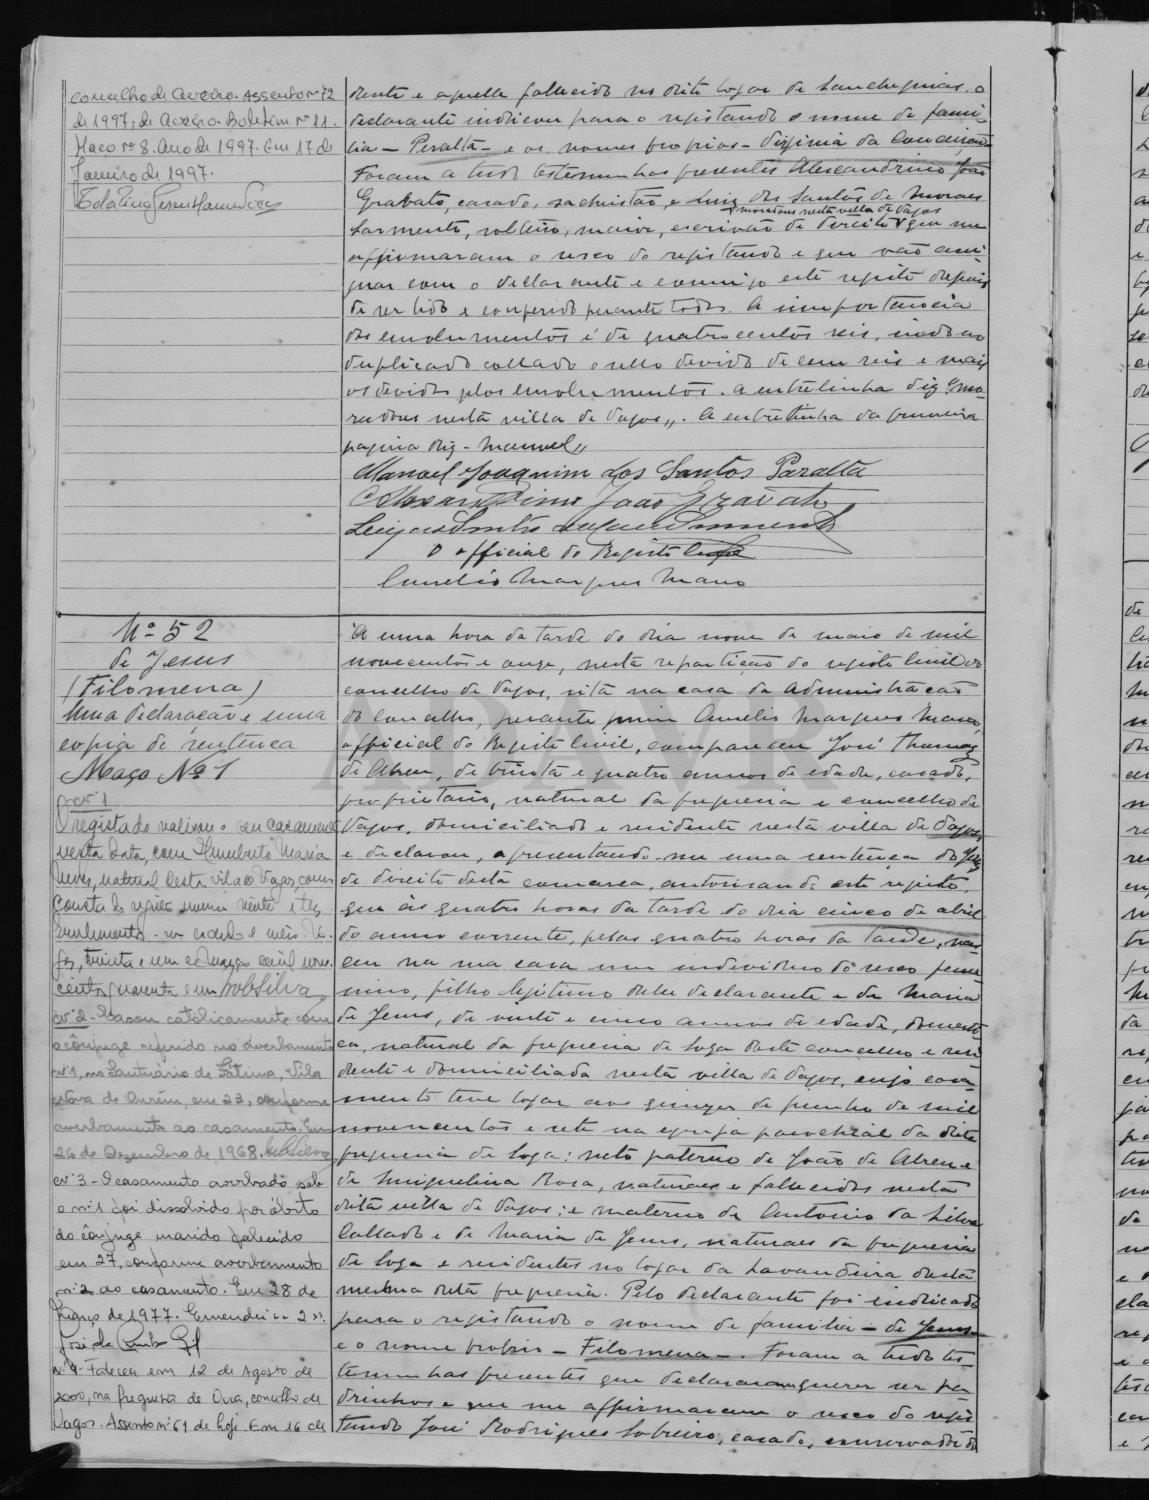 concelho de Aveiro. Assento nº 72
de 1997, de Aveiro. Boletim nº 11.
Maço nº 8. Ano de 1997. Em 17 de
Janeiro de 1997.
dente e aquella fallecido no dito logar de Sanchequias. O
declarante indicou para o registando o nome de fami-
lia - Peralta - e os nomes proprios - Virginia da Conceição
Foram a tudo testemunhas presentes Alexandrino João
Gravato, casado, sachristão, e Luiz dos Santos de Moraes
moradores nesta villa de Vagos
Sarmento, solteiro, maior, escrivão de direito que me
affirmaram o sexo do registando e que vão assi-
gnar com o declarante e commigo este registo depois
de ser lido e conferido perante todos. A importancia
dos emolumentos é de quatro centos reis, indo ao
duplicado collado o sello devido de cem reis e mais
os devidos pelos emolumentos. A entrelinha diz "mo-
radores nesta villa de Vagos". A entrelinha da primeira
pagina diz - Manuel"
Manoel Joaquim dos Santos Paralta
Alexandrino João Gravato
Luiz dos Santos de Moraes Sarmento
O official do Registo Civil
Aurelio Marques Mano
Nº 52
de Jesus
(Filomena)
Uma declaração e uma
copia de sentença
Maço Nº 1
nº 1
O registado realizou o seu casamento
nesta data, com Humberto Maria
Neves, natural desta vila de Vagos, como
consta do registo numero vinte e tres
Averbamento
trinta e um de Março de mil nove-
centos quarenta e um
nº 2 - Casou catolicamente com
o cônjuge referido no averbamento
nº 1, no Santuário de Fátima, Vila
Nova de Ourém, em 23, conforme
averbamento ao casamento. Em
26 de Dezembro de 1968.
nº 3 - O casamento averbado sob
o nº 1 foi dissolvido por óbito
do cônjuge marido falecido
em 27, conforme averbamento
nº 2 ao casamento. Em 28 de
Março de 1977. Emendei "2".
José da
nº 4 - Faleceu em 12 de Agosto de
2000, na freguesia de Ouca, concelho de
Vagos. Assento nº 61 de hoje. Em 16 de
A uma hora da tarde do dia nove de maio de mil
novecentos e onze, nesta repartição do registo civil do
concelho de Vagos, sita na casa da Administração
do Concelho, perante mim Aurelio Marques Mano,
official do Registo Civil, compareceu José Thomaz
de Abreu, de trinta e quatro annos de edade, casado,
proprietario, natural da freguesia e concelho de
Vagos, domiciliado e residente nesta villa de Vagos,
e declarou, apresentando-me uma sentença do Juiz
de direito desta comarca, autorisando este registo,
que ás quatro horas da tarde do dia cinco de abril
do anno corrente, pelas quatro horas da tarde, nas-
ceu na sua casa um individuo do sexo femi-
nino, filho legitimo delle declarante e de Maria
de Jesus, de vinte e cinco annos de edade, domesti-
ca, natural da freguesia de Soza deste concelho e resi-
dente e domiciliada nesta villa de Vagos, cujo casa-
mento teve logar aos quinze de junho de mil
novecentos e sete na egreja parochial da dita
freguesia de Soza: neto paterno de João de Abreu e
de Miquelina Rosa, naturaes e fallecidos nesta
dita villa de Vagos: e materno de Antonio da Silva
Callado e de Maria de Jesus, naturaes da freguesia
de Soza e residentes no logar da Lavandeira desta
mesma dita freguesia. Pelo declarante foi indicado
para o registando o nome de familia - de Jesus -
e o nome proprio - Filomena -. Foram a tudo tes-
temunhas presentes que declararam querer ser pa-
drinhos e que me affirmaram o sexo do regis-
tando José Rodrigues Sobreiro, casado, conservador do
ADAVR